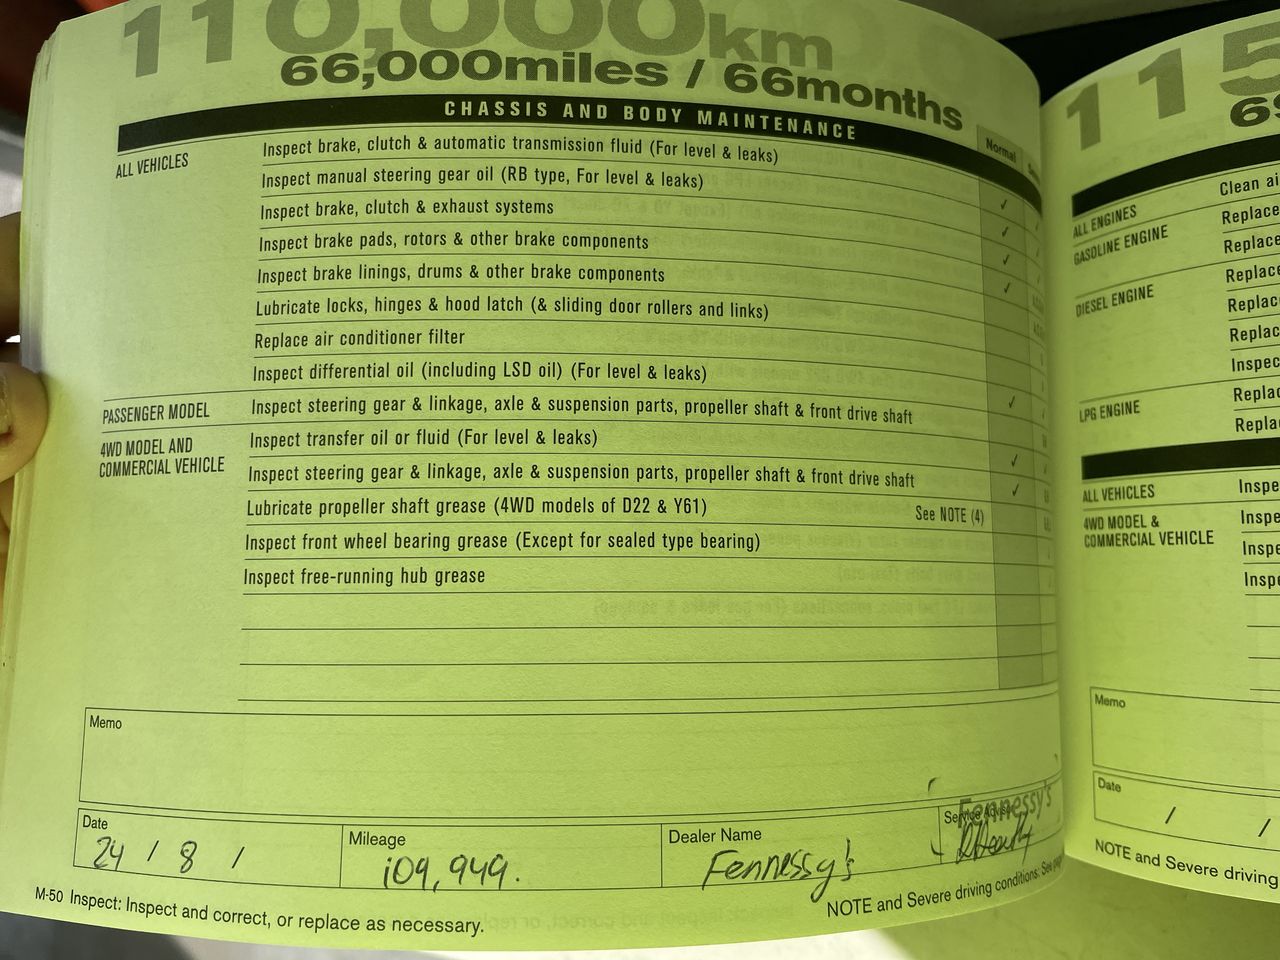 110,000km
66,000miles / 66months
CHASSIS AND BODY MAINTENANCE
Normal
ALL VEHICLES
Inspect brake, clutch & automatic transmission fluid (For level & leaks)
Inspect manual steering gear oil (RB type, For level & leaks)
Inspect brake, clutch & exhaust systems
Inspect brake pads, rotors & other brake components
Inspect brake linings, drums & other brake components
Lubricate locks, hinges & hood latch (& sliding door rollers and links)
Replace air conditioner filter
Inspect differential oil (including LSD oil) (For level & leaks)
PASSENGER MODEL
Inspect steering gear & linkage, axle & suspension parts, propeller shaft & front drive shaft
4WD MODEL AND
COMMERCIAL VEHICLE
Inspect transfer oil or fluid (For level & leaks)
Inspect steering gear & linkage, axle & suspension parts, propeller shaft & front drive shaft
Lubricate propeller shaft grease (4WD models of D22 & Y61) See NOTE (4)
Inspect front wheel bearing grease (Except for sealed type bearing)
Inspect free-running hub grease
Memo
Date
24 / 8 /
Mileage
109,949.
Dealer Name
Fennessy's
Fennessy's
M-50 Inspect: Inspect and correct, or replace as necessary.
NOTE and Severe driving conditions: See
115
ALL ENGINES
Clean ai
Replace
GASOLINE ENGINE
Replace
Replace
DIESEL ENGINE
Replac
Replac
Inspec
LPG ENGINE
Replac
Replac
ALL VEHICLES
Inspe
4WD MODEL &
COMMERCIAL VEHICLE
Inspe
Inspe
Inspe
Memo
Date
/ /
NOTE and Severe driving